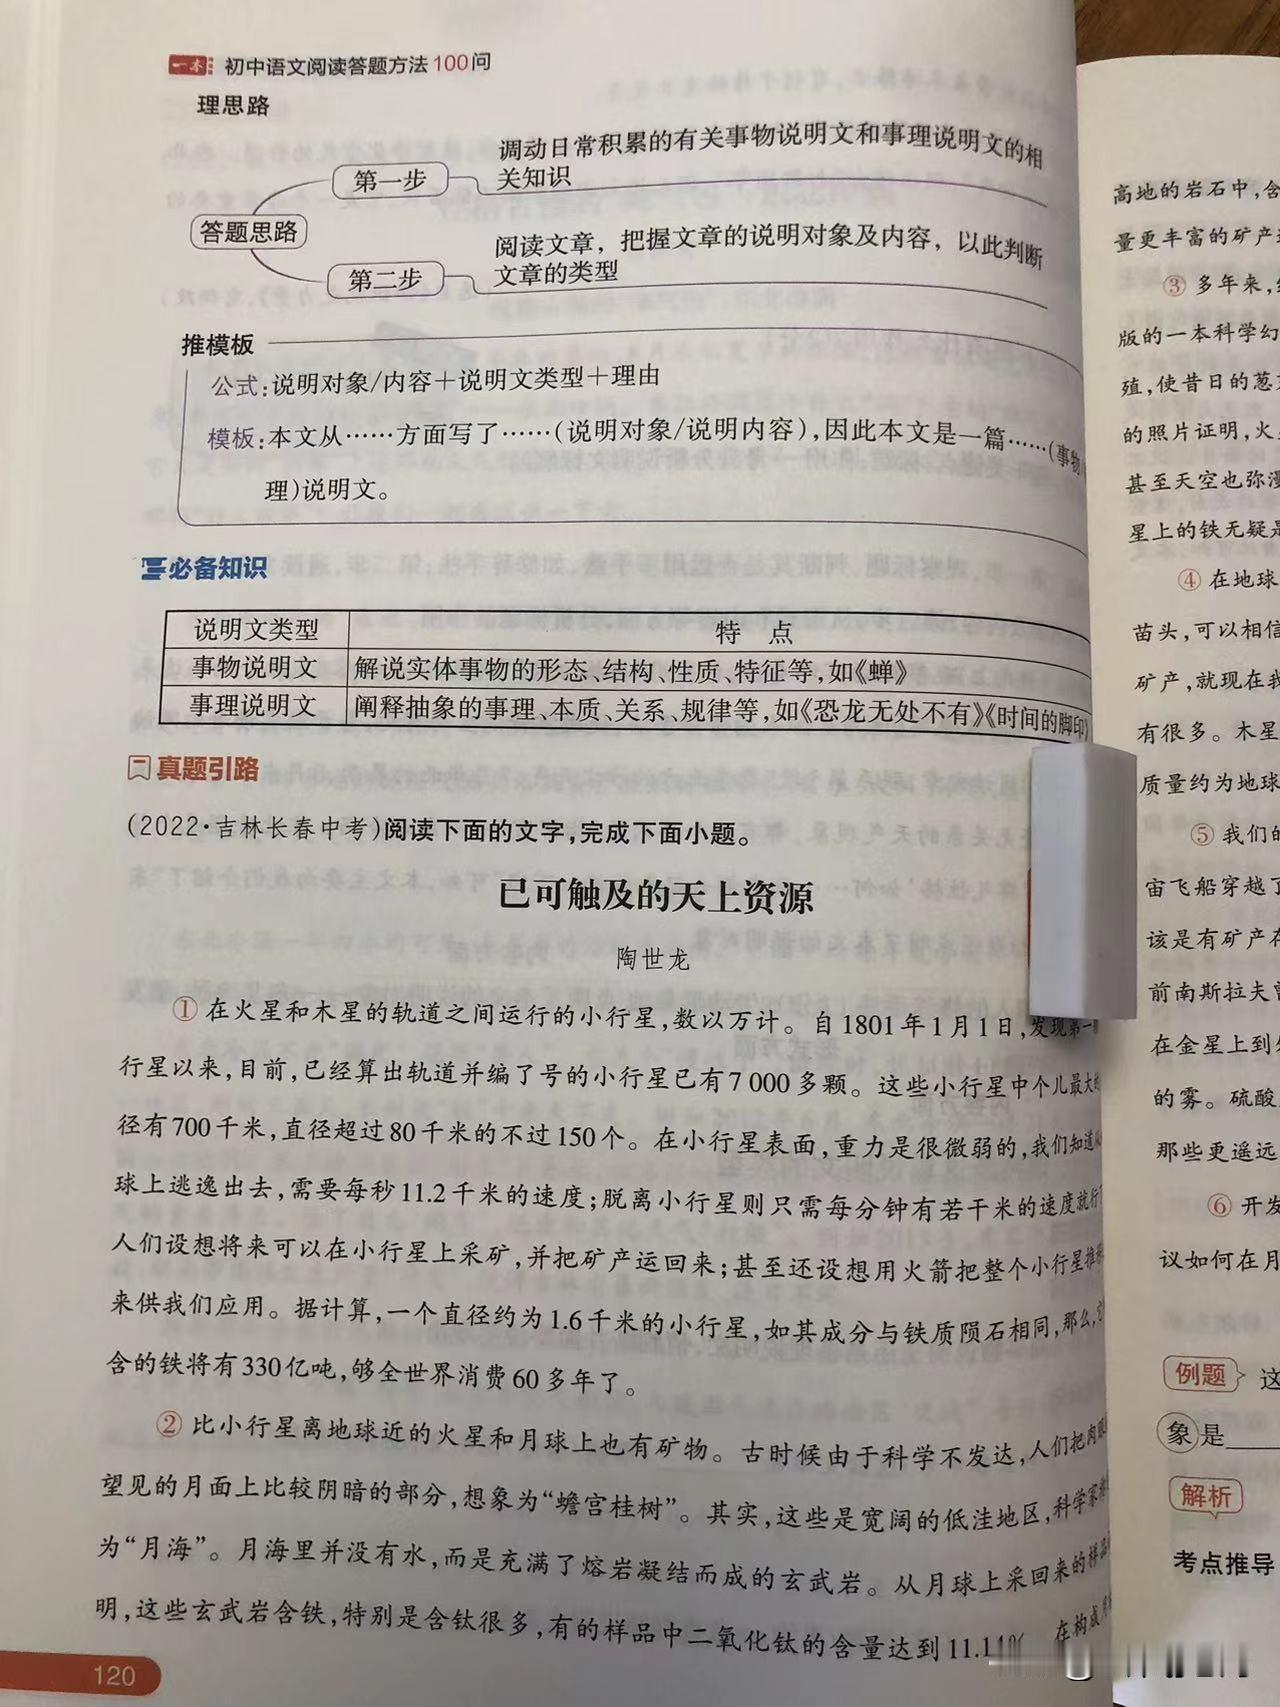 一本 初中语文阅读答题方法100问
理思路
答题思路
第一步
调动日常积累的有关事物说明文和事理说明文的相
关知识
第二步
阅读文章，把握文章的说明对象及内容，以此判断
文章的类型
推模板
公式：说明对象/内容＋说明文类型＋理由
模板：本文从……方面写了……（说明对象/说明内容），因此本文是一篇……（事物
理）说明文。
必备知识
说明文类型 特 点
事物说明文 解说实体事物的形态、结构、性质、特征等，如《蝉》
事理说明文 阐释抽象的事理、本质、关系、规律等，如《恐龙无处不有》《时间的脚印》
真题引路
（2022·吉林长春中考）阅读下面的文字，完成下面小题。
已可触及的天上资源
陶世龙
①在火星和木星的轨道之间运行的小行星，数以万计。自1801年1月1日，发现第一
行星以来，目前，已经算出轨道并编了号的小行星已有7 000多颗。这些小行星中个儿最大的
径有700千米，直径超过80千米的不过150个。在小行星表面，重力是很微弱的，我们知道
球上逃逸出去，需要每秒11.2千米的速度；脱离小行星则只需每分钟有若干米的速度就行
人们设想将来可以在小行星上采矿，并把矿产运回来；甚至还设想用火箭把整个小行星推
来供我们应用。据计算，一个直径约为1.6千米的小行星，如其成分与铁质陨石相同，那么，
含的铁将有330亿吨，够全世界消费60多年了。
②比小行星离地球近的火星和月球上也有矿物。古时候由于科学不发达，人们把肉眼
望见的月面上比较阴暗的部分，想象为“蟾宫桂树”。其实，这些是宽阔的低洼地区，科学家
为“月海”。月海里并没有水，而是充满了熔岩凝结而成的玄武岩。从月球上采回来的样品
明，这些玄武岩含铁，特别是含钛很多，有的样品中二氧化钛的含量达到11.1 在构成
120
高地的岩石中，含
量更丰富的矿产
③多年来，
版的一本科学幻
殖，使昔日的葱
的照片证明，火
甚至天空也弥漫
星上的铁无疑是
④在地球
苗头，可以相信
矿产，就现在我
有很多。木星
质量约为地球
⑤我们的
宙飞船穿越了
该是有矿产存
前南斯拉夫曾
在金星上到处
的雾。硫酸
那些更遥远
⑥开发
议如何在月
例题 这
象是
解析
考点推导